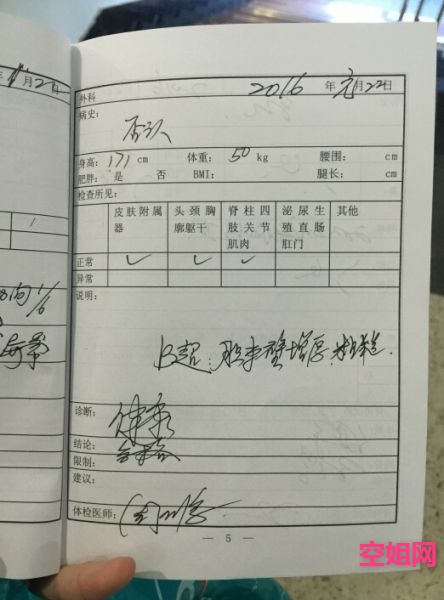 月2日
外科 2016 年元月22日
病史：
否认
身高：171 cm 体重：50 kg 腰围： cm
肥胖： 是 否 BMI： 腿长： cm
检查所见：
皮肤附属器 头颈胸廓躯干 脊柱四肢关节肌肉 泌尿生殖直肠肛门 其他
正常 ✓ ✓ ✓
异常
说明：
B超：胆囊壁增厚、粗糙.
诊断： 健康
结论： 合格
限制：
建议：
体检医师：
— 5 —
空姐网